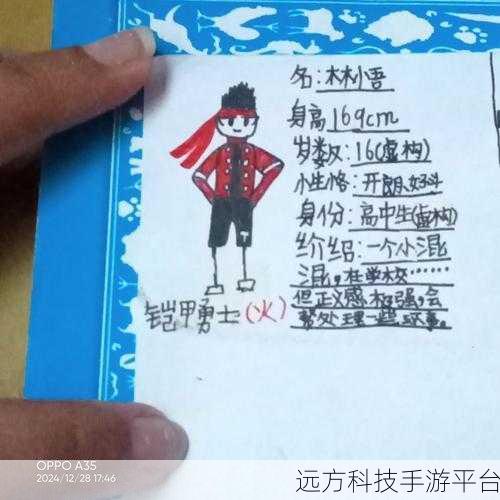 名:林小吾
身高169cm
岁数:16(虚构)
小生格:开朗、好斗
身份:高中生(虚构)
介绍:一个小混
混,在学校……
但正义感极强,会
帮处理一些坏事。
铠甲勇士(火)
OPPO A35
2024/12/28 17:46
远方科技手游平台